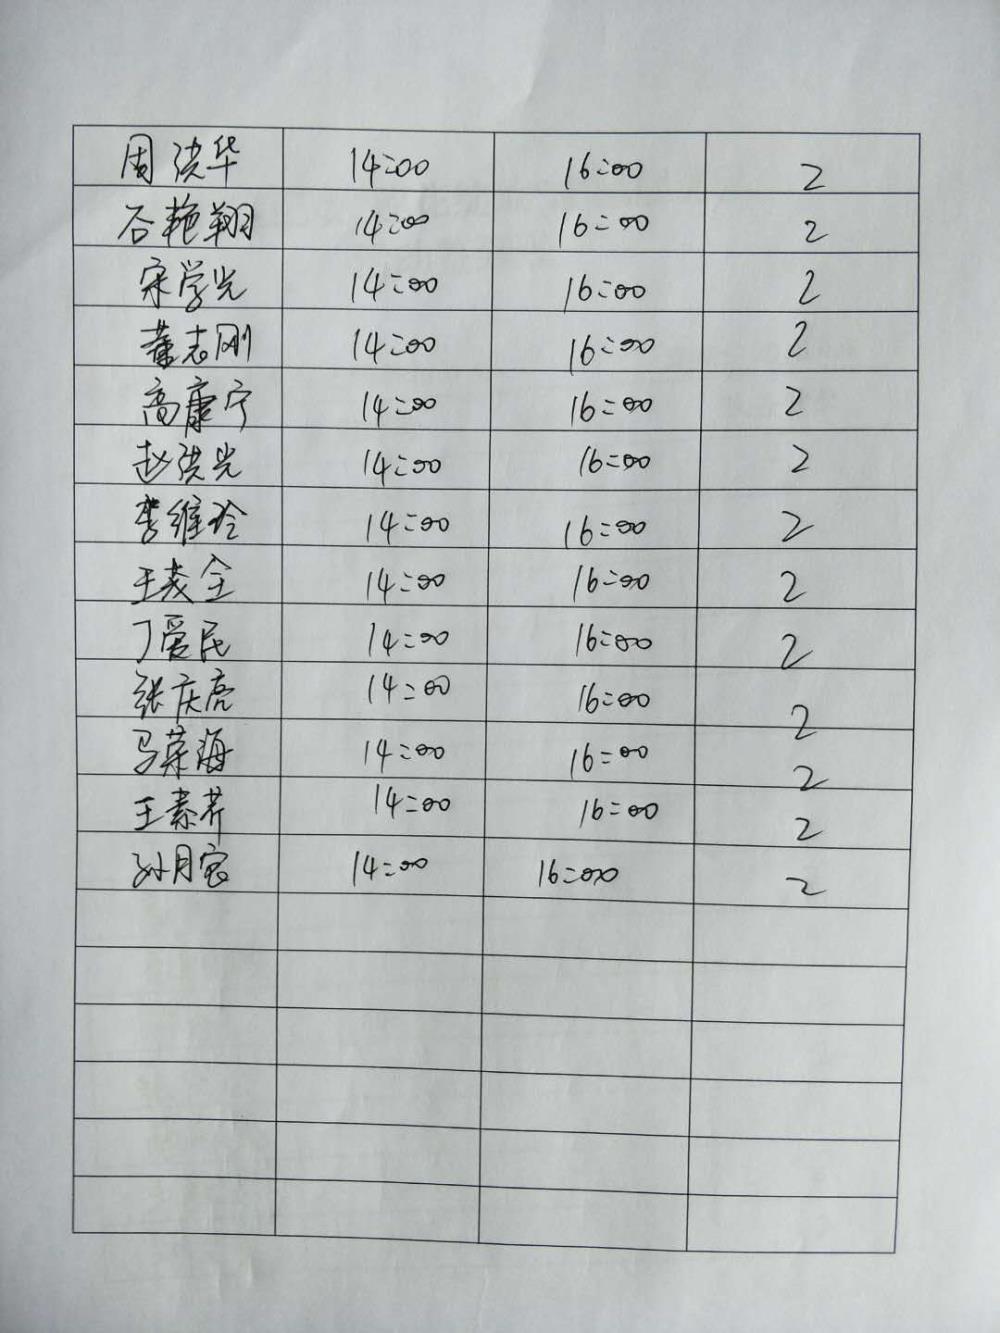 周洪华 14:00 16:00 2
谷艳翔 14:00 16:00 2
宋学光 14:00 16:00 2
董志刚 14:00 16:00 2
高康宁 14:00 16:00 2
赵洪光 14:00 16:00 2
李维玲 14:00 16:00 2
王茂全 14:00 16:00 2
丁爱民 14:00 16:00 2
张庆亮 14:00 16:00 2
马荣海 14:00 16:00 2
王素芹 14:00 16:00 2
孙月 14:00 16:00 2